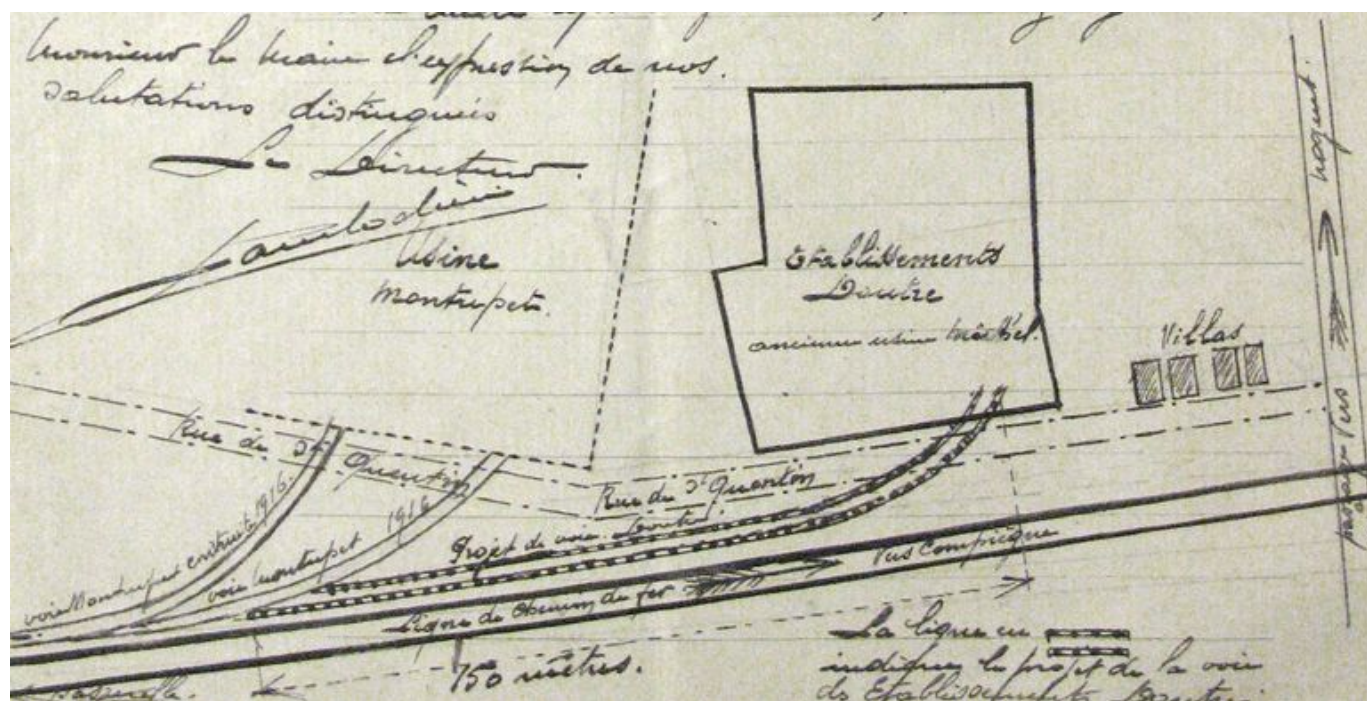 Monsieur le Maire l'expression de nos
salutations distingués
Le Directeur.
Usine
Montupet.
Etablissements
Doutre
ancienne usine
Villas
Noguent.
Rue de St Quentin
Rue de St Quentin
voie Montupet construite 1916.
voie Montupet 1916
Projet de voie Doutre
Ligne de Chemin de fer
vers Compiègne
passage vers
150 mètres.
passerelle.
La ligne en
indique le projet de la voie
ds Etablissements Doutre.